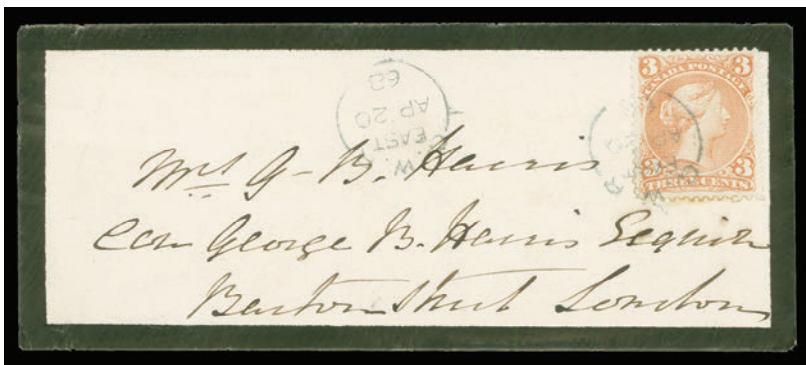 3 CANADA POSTAGE 3
3 THREE CENTS 3
EAST
AP 20
68
Mrs G. B. Harris
Care George B. Harris Esquire
London